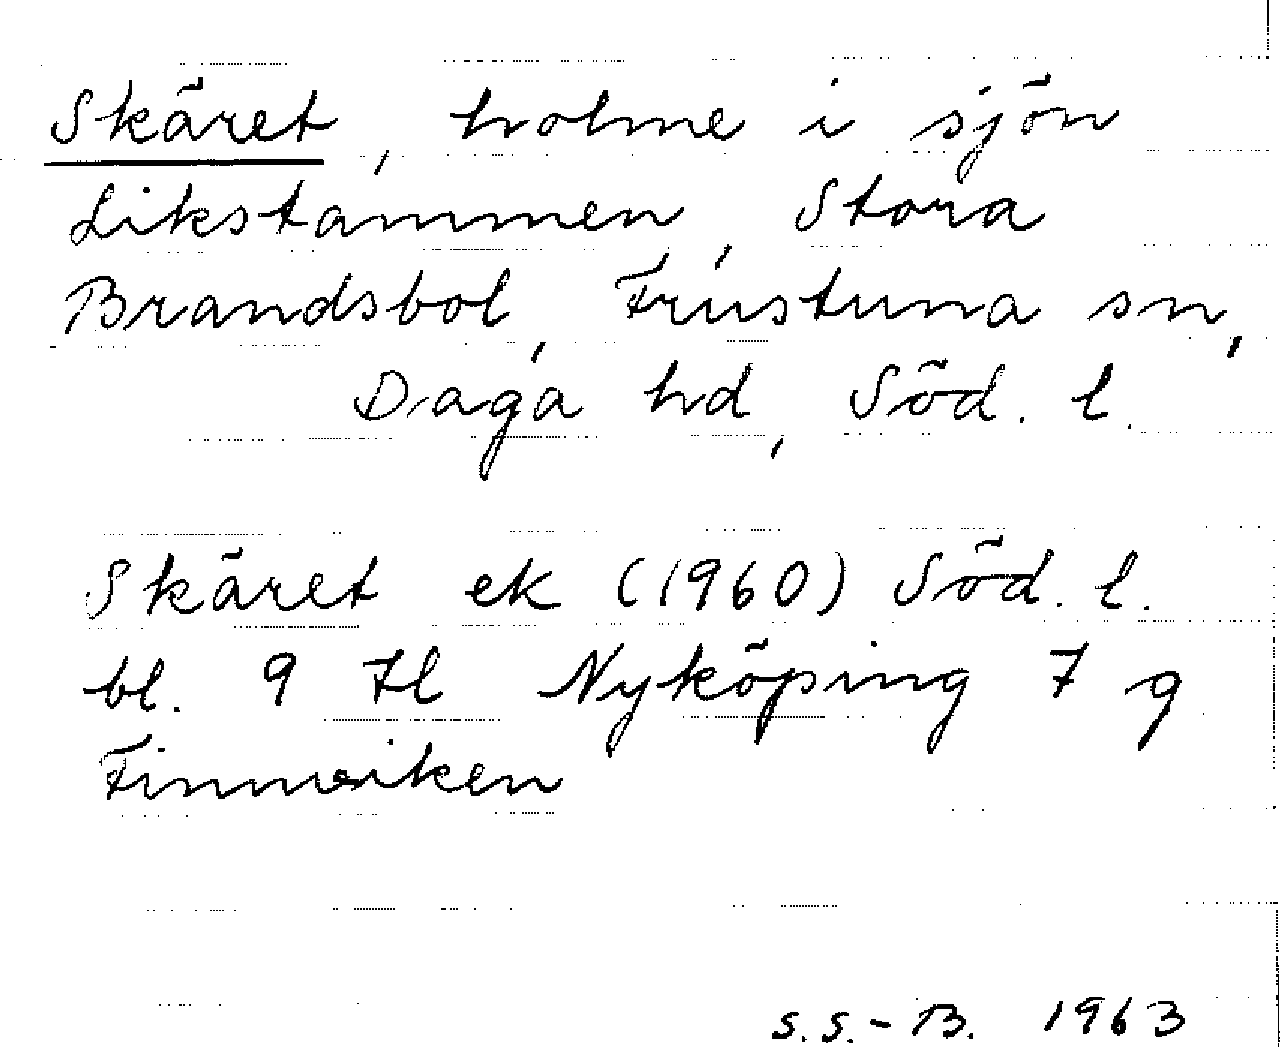 Skäret, holme i sjön
Likstammen, Stora
Brandsbol, Frustuna sn,
Daga hd, Söd. l.
Skäret ek (1960) Söd. l.
bl. 9 Il Nyköping 7 g
Finnviken
S.S.-B. 1963